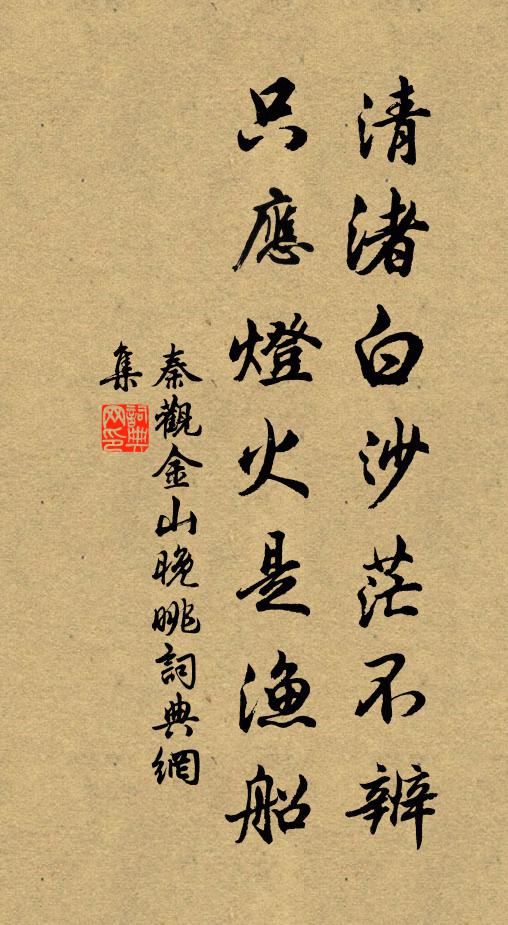 清渚白沙茫不辨
只應燈火是漁船
秦觀金山晚眺詞典網
集
詞典
网印